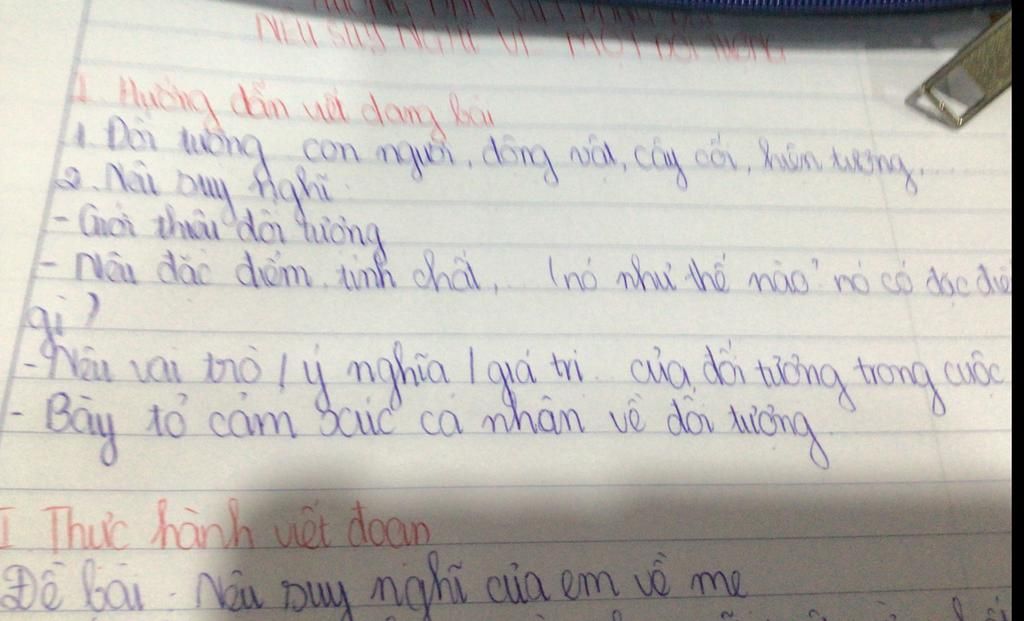 NÊU SUY NGHĨ VỀ MỘT ĐỐI TƯỢNG
I. Hướng dẫn viết dạng bài
1. Đối tượng con người, động vật, cây cối, hiện tượng,...
2. Nêu suy nghĩ
- Giới thiệu đối tượng
- Nêu đặc điểm, tính chất, (nó như thế nào? nó có đặc điể
gì)
- Nêu vai trò / ý nghĩa / giá trị của đối tượng trong cuộc
- Bày tỏ cảm xúc cá nhân về đối tượng
I Thực hành viết đoạn
Đề bài: Nêu suy nghĩ của em về mẹ